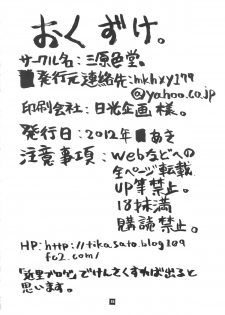 おくずけ。
サークル名：三原色堂。
発行元連絡先：mkhxy179
@yahoo.co.jp
印刷会社：日光企画様。
発行日：2012年 あき
注意事項：Webなどへの
全ページ転載
UP等禁止。
18才未満
購読禁止。
HP：http://tikasato.blog109
fc2.com/
「近里ブログ」でけんさくすれば出ると
思います。